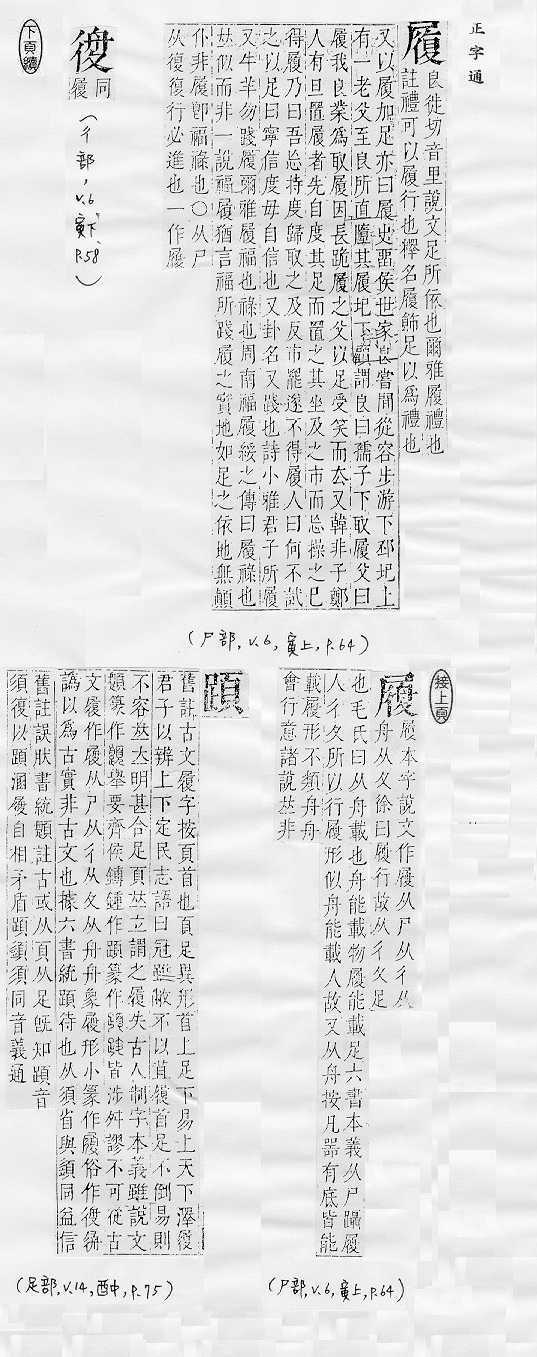 正字通
履
良徙切音里說文足所依也爾雅履禮也
註禮可以履行也釋名履飾足以為禮也
又以履加足亦曰履史畱侯世家良嘗閒從容步游下邳圯上
有一老父至良所直墮其履圯下顧謂良曰孺子下取履父曰
履我良業為取履因長跪履之父以足受笑而去又韓非子鄭
人有且置履者先自度其足而置之其坐及之市而忘操之已
得履乃曰吾忘持度歸取之及反市罷遂不得履人曰何不試
之以足曰寧信度毋自信也又卦名又踐也詩小雅君子所履
又牛羊勿踐履爾雅履福也祿也周南福履綏之傳曰履祿也
𠀤似而非一說福履猶言福所踐履之實地如足之依地無顛
仆非履卽福祿也○从尸
从復復行必進也一作履
(尸部,v.6,寅上,p.64)
同
履
(彳部,v.6,寅下,p.58)
下頁續
接上頁
履
履本字說文作履从尸从彳从
舟从夊徐曰履行故从彳夊足
也毛氏曰从舟載也舟能載物履能載足六書本義从尸躡履
人彳夊所以行履形似舟能載人故又从舟按凡器有底皆能
載履形不類舟舟
會行意諸說𠀤非
(尸部,v.6,寅上,p.64)
舊註古文履字按頁首也頁足異形首上足下易上天下澤履
君子以辨上下定民志語曰冠雖敝不以苴履首足不倒易則
不容𠀤大明甚合足頁𠀤立謂之履失古人制字本義雖說文
皆涉舛謬不可從古
譌以為古實非古文也據六書統䫙待也从須省與䇓同益信
舊註誤狀書統題註古或从頁从足旣知䫙音
須復以䫙溷履自相矛盾䫙䇓須同音義通
(足部,v.14,酉中,p.75)